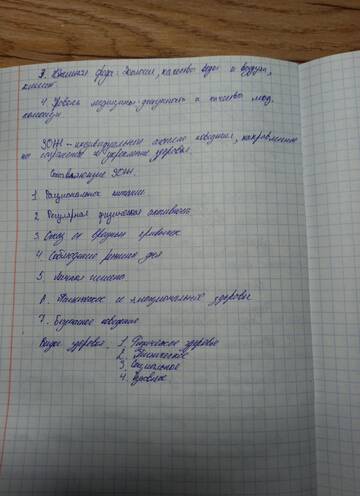 3. Внешняя среда: Экология, качество воды и воздуха, климат.
4. Уровень медицины: доступность и качество мед. помощи
ЗОЖ – индивидуальная система поведения, направленная
на сохранение и укрепление здоровья.
Составляющие ЗОЖ.
1. Рациональное питание.
2. Регулярная физическая активность
3. Отказ от вредных привычек
4. Соблюдение режима дня
5. Личная гигиена
6. Психическое и эмоциональное здоровье
7. Безопасное поведение
Виды здоровья 1. Физическое здоровье
2. Психическое
3. Социальное
4. Духовное